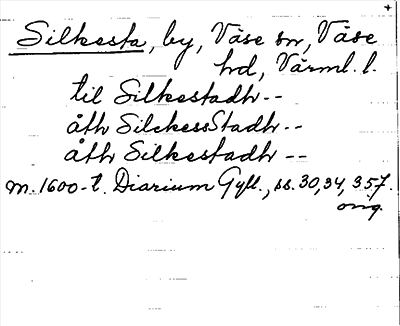 Silkesta, by, Väse sn, Väse
hd, Värml. l.
til Silkestadh--
åth SilckessStadh--
åth Silkestadh --
m. 1600-t. Diarium Gyll., ss. 30, 34, 357.
orig.